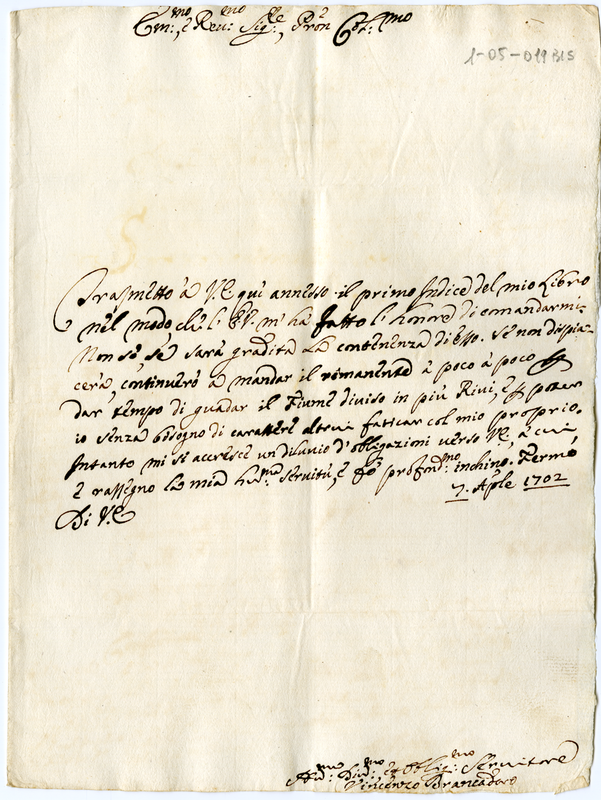 Em:mo, e Reu:mo Sig:re, Pron Col:mo
1-05-019BIS
Trasmetto à V.E. qui annesso il primo Indice del mio Libro
nel modo che l'E.V. m'ha fatto l'honore di comandarmi.
Non sò, se sarà gradita la continenza di esso. Se non dispia-
cerà, continuerò a mandar il rimanente à poco à poco
dar tempo di guadar il Fiume diuiso in più Riui, e poter
io senza bisogno di carattere altrui faticar col mio proprio.
Intanto mi si accresce un diluuio d'obligazioni uerso V.E., à cui
e rassegno la mia hu:ma seruitù, e fò profon:mo inchino. Fermo
7. Aple 1702
Di V.E.
Diu:mo, et Oblig:mo Seruitore
Vincenzo Brancadoro